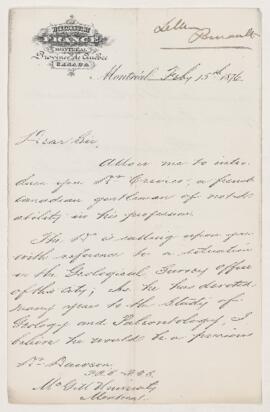 FRANCE
MONTREAL
Province de Québec
CANADA
Letter
Perrault
Montréal Feby 15th 1876
Dear Sir
Allow me to intro-
duce you Dr Crevier, a french
Canadian gentleman of not-
ability in his profession.
The Dr is calling upon you
with reference to a situation
in the Geological Survey Office
of this city; as he has devoted
many years to the Study of
Geology and Paleontology, I
believe he would be a precious
Dr Dawson
McGill University
Montreal